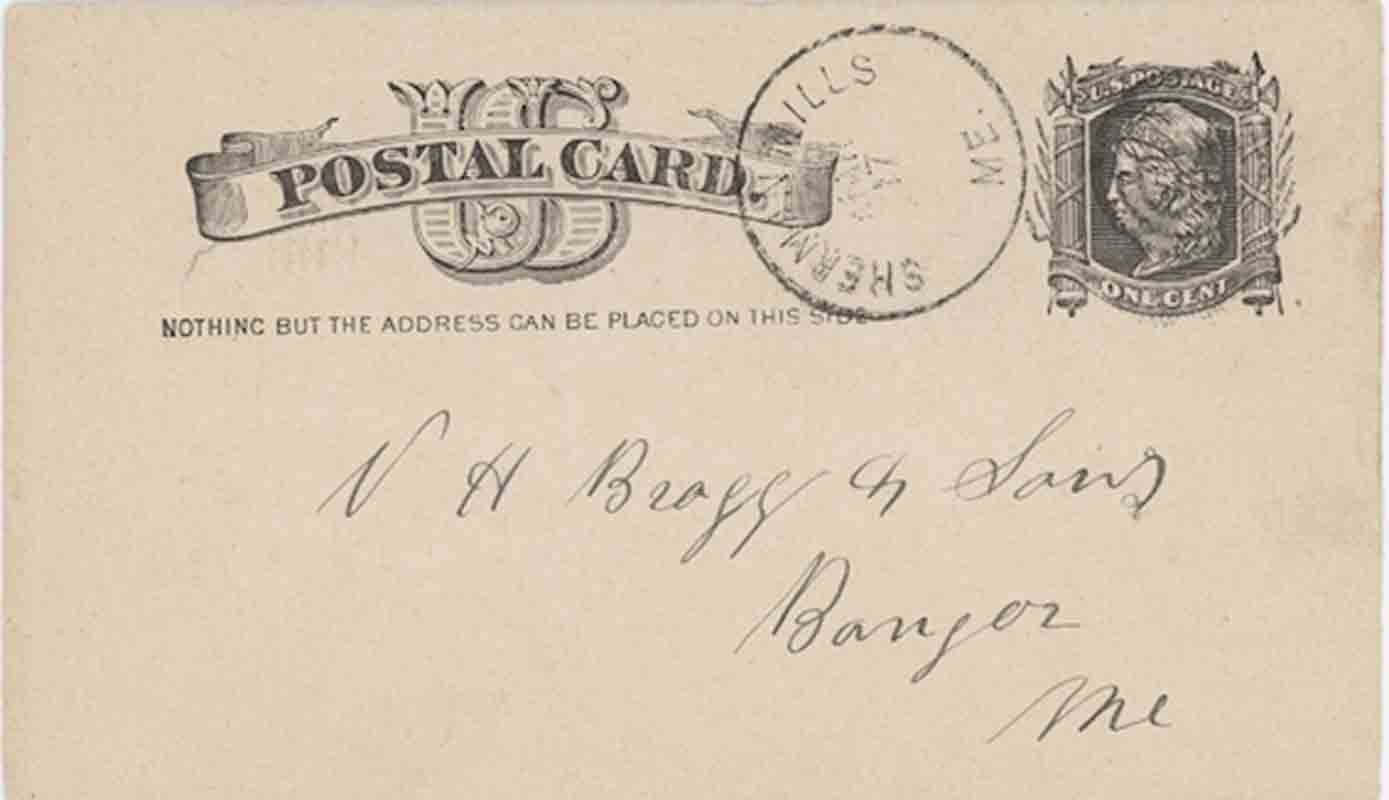 US
POSTAL CARD.
NOTHING BUT THE ADDRESS CAN BE PLACED ON THIS SIDE
SHERMAN MILLS
ME.
U.S. POSTAGE
ONE CENT
N H Bragg & Sons
Bangor
Me